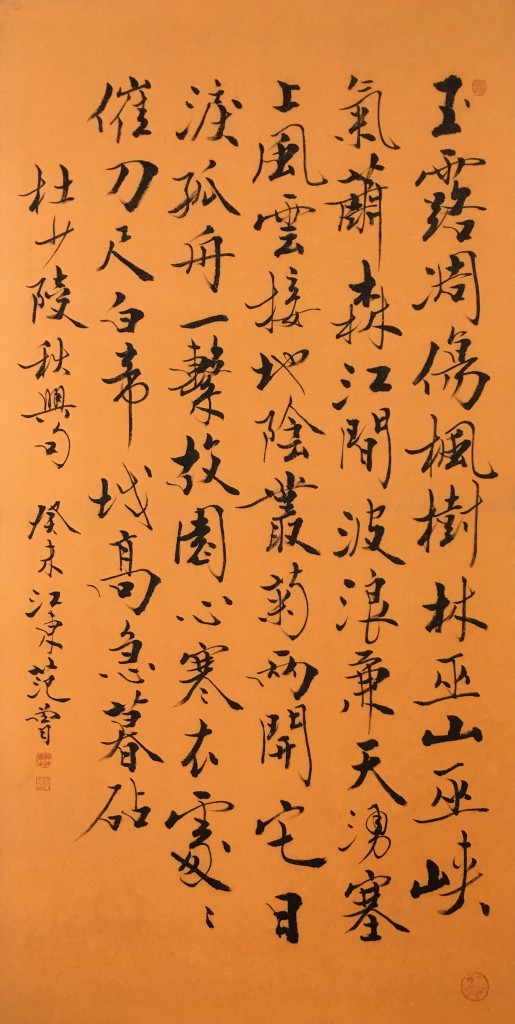 玉露凋傷楓樹林巫山巫峽
氣蕭森江間波浪兼天湧塞
上風雲接地陰叢菊兩開它日
淚孤舟一繫故園心寒衣處〻
催刀尺白帝城高急暮砧
杜少陵秋興句 癸未江東范曾